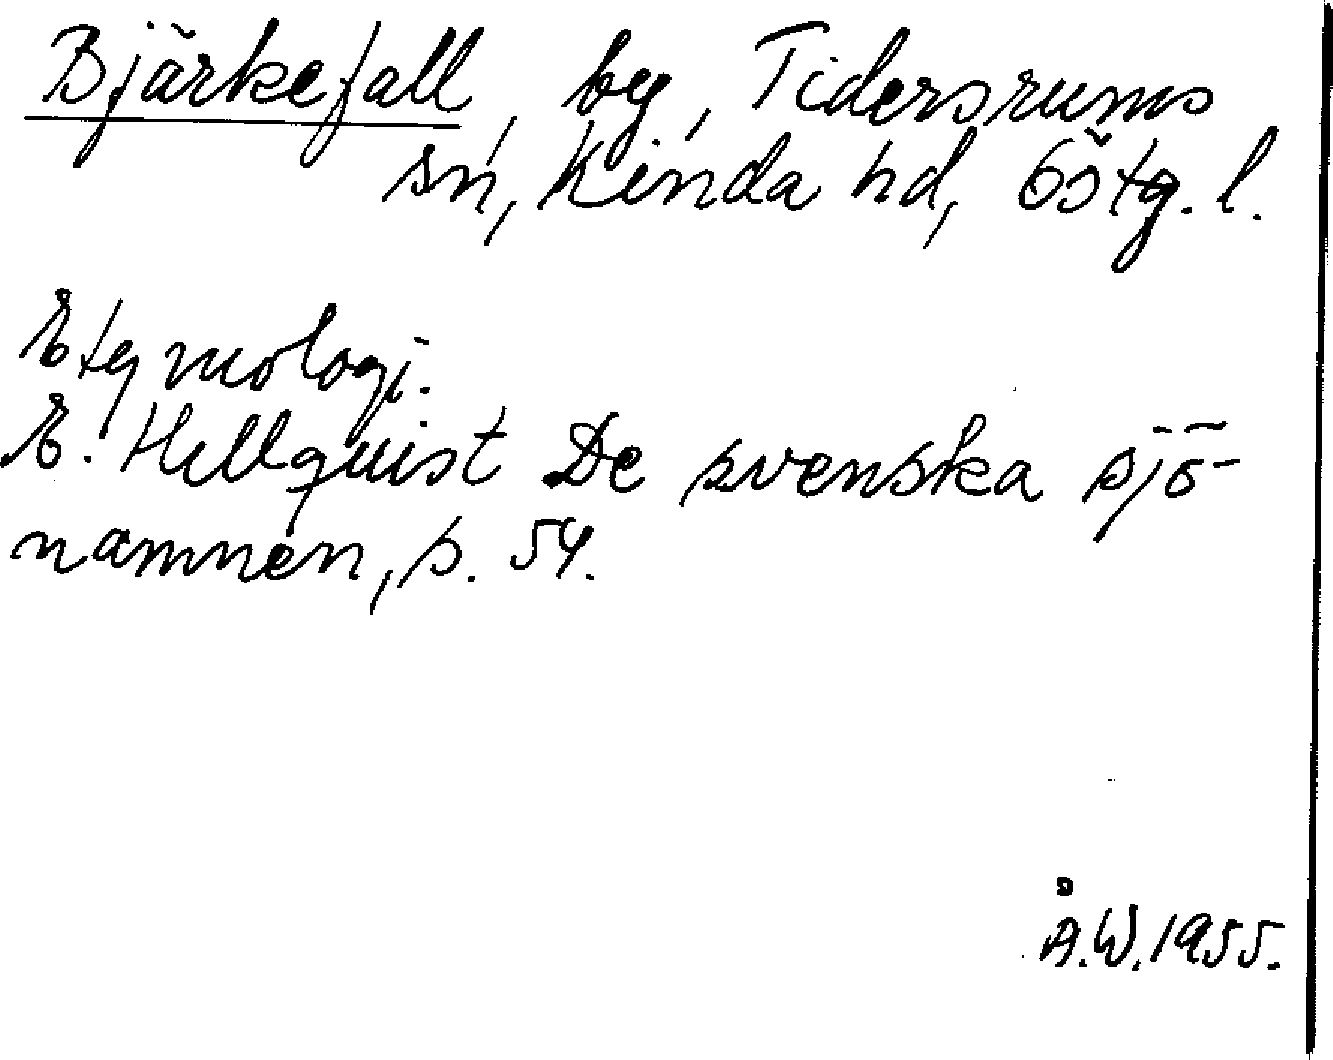 Bjärkefall, by, Tidersrums
sn, Kinda hd, Östg. l.
Etymologi.
E. Hellquist De svenska sjö-
namnen, s. 54.
Å.W. 1955.